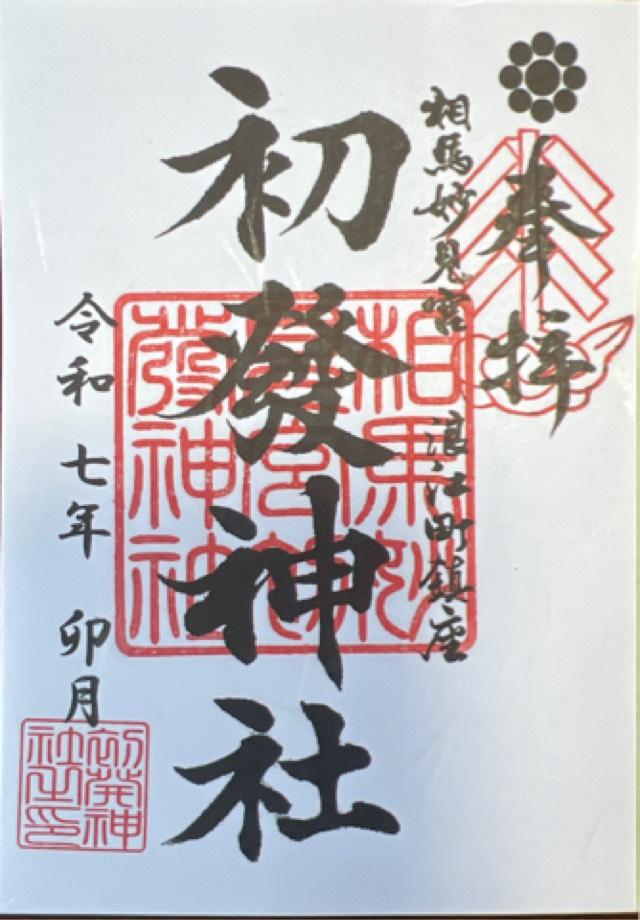 奉拝
相馬妙見宮 浪江町鎮座
初發神社
令和 七年 卯月
相馬妙見宮初發神社
初發神社之印